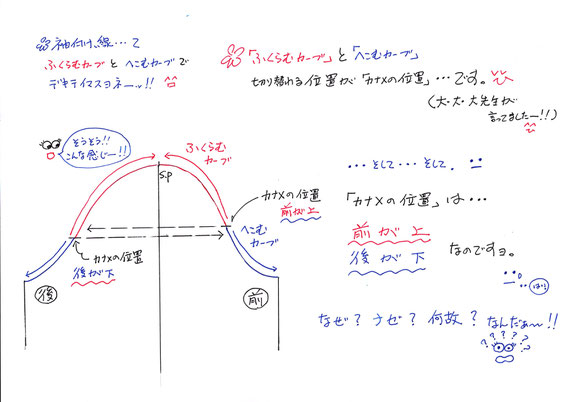 袖付け線…って
ふくらむカーブとへこむカーブで
デキテイマスヨネーッ!!
「ふくらむカーブ」と「へこむカーブ」
切り替わる位置が「カナメの位置」…です。
(大・大・大先生が
言ってましたー!!)
そうそう!!
こんな感じー!!
ふくらむ
カーブ
S.P
カナメの位置
前が上
へこむ
カーブ
カナメの位置
後が下
後
前
…そして…そして.
「カナメの位置」は…
前が上
後が下
なのですヨ。
はい
なぜ?ナゼ?何故?なんだぁ〜!!
????